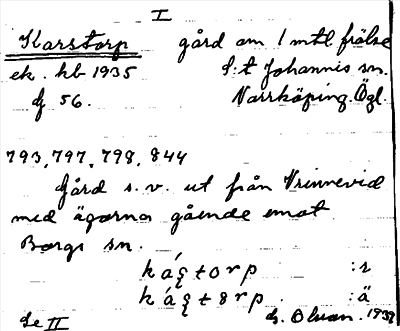 I
Karstorp gård om 1 mtl frälse
ek. kb 1935 S:t Johannis sn.
bl 56. Norrköping. Ögl.
793, 797, 798, 844
Gård s.v. ut från Vrinnevid
med ägorna gående emot
Borgs sn.
káştorp :r
káştôrp :ä
Se II G. Olson. 1938